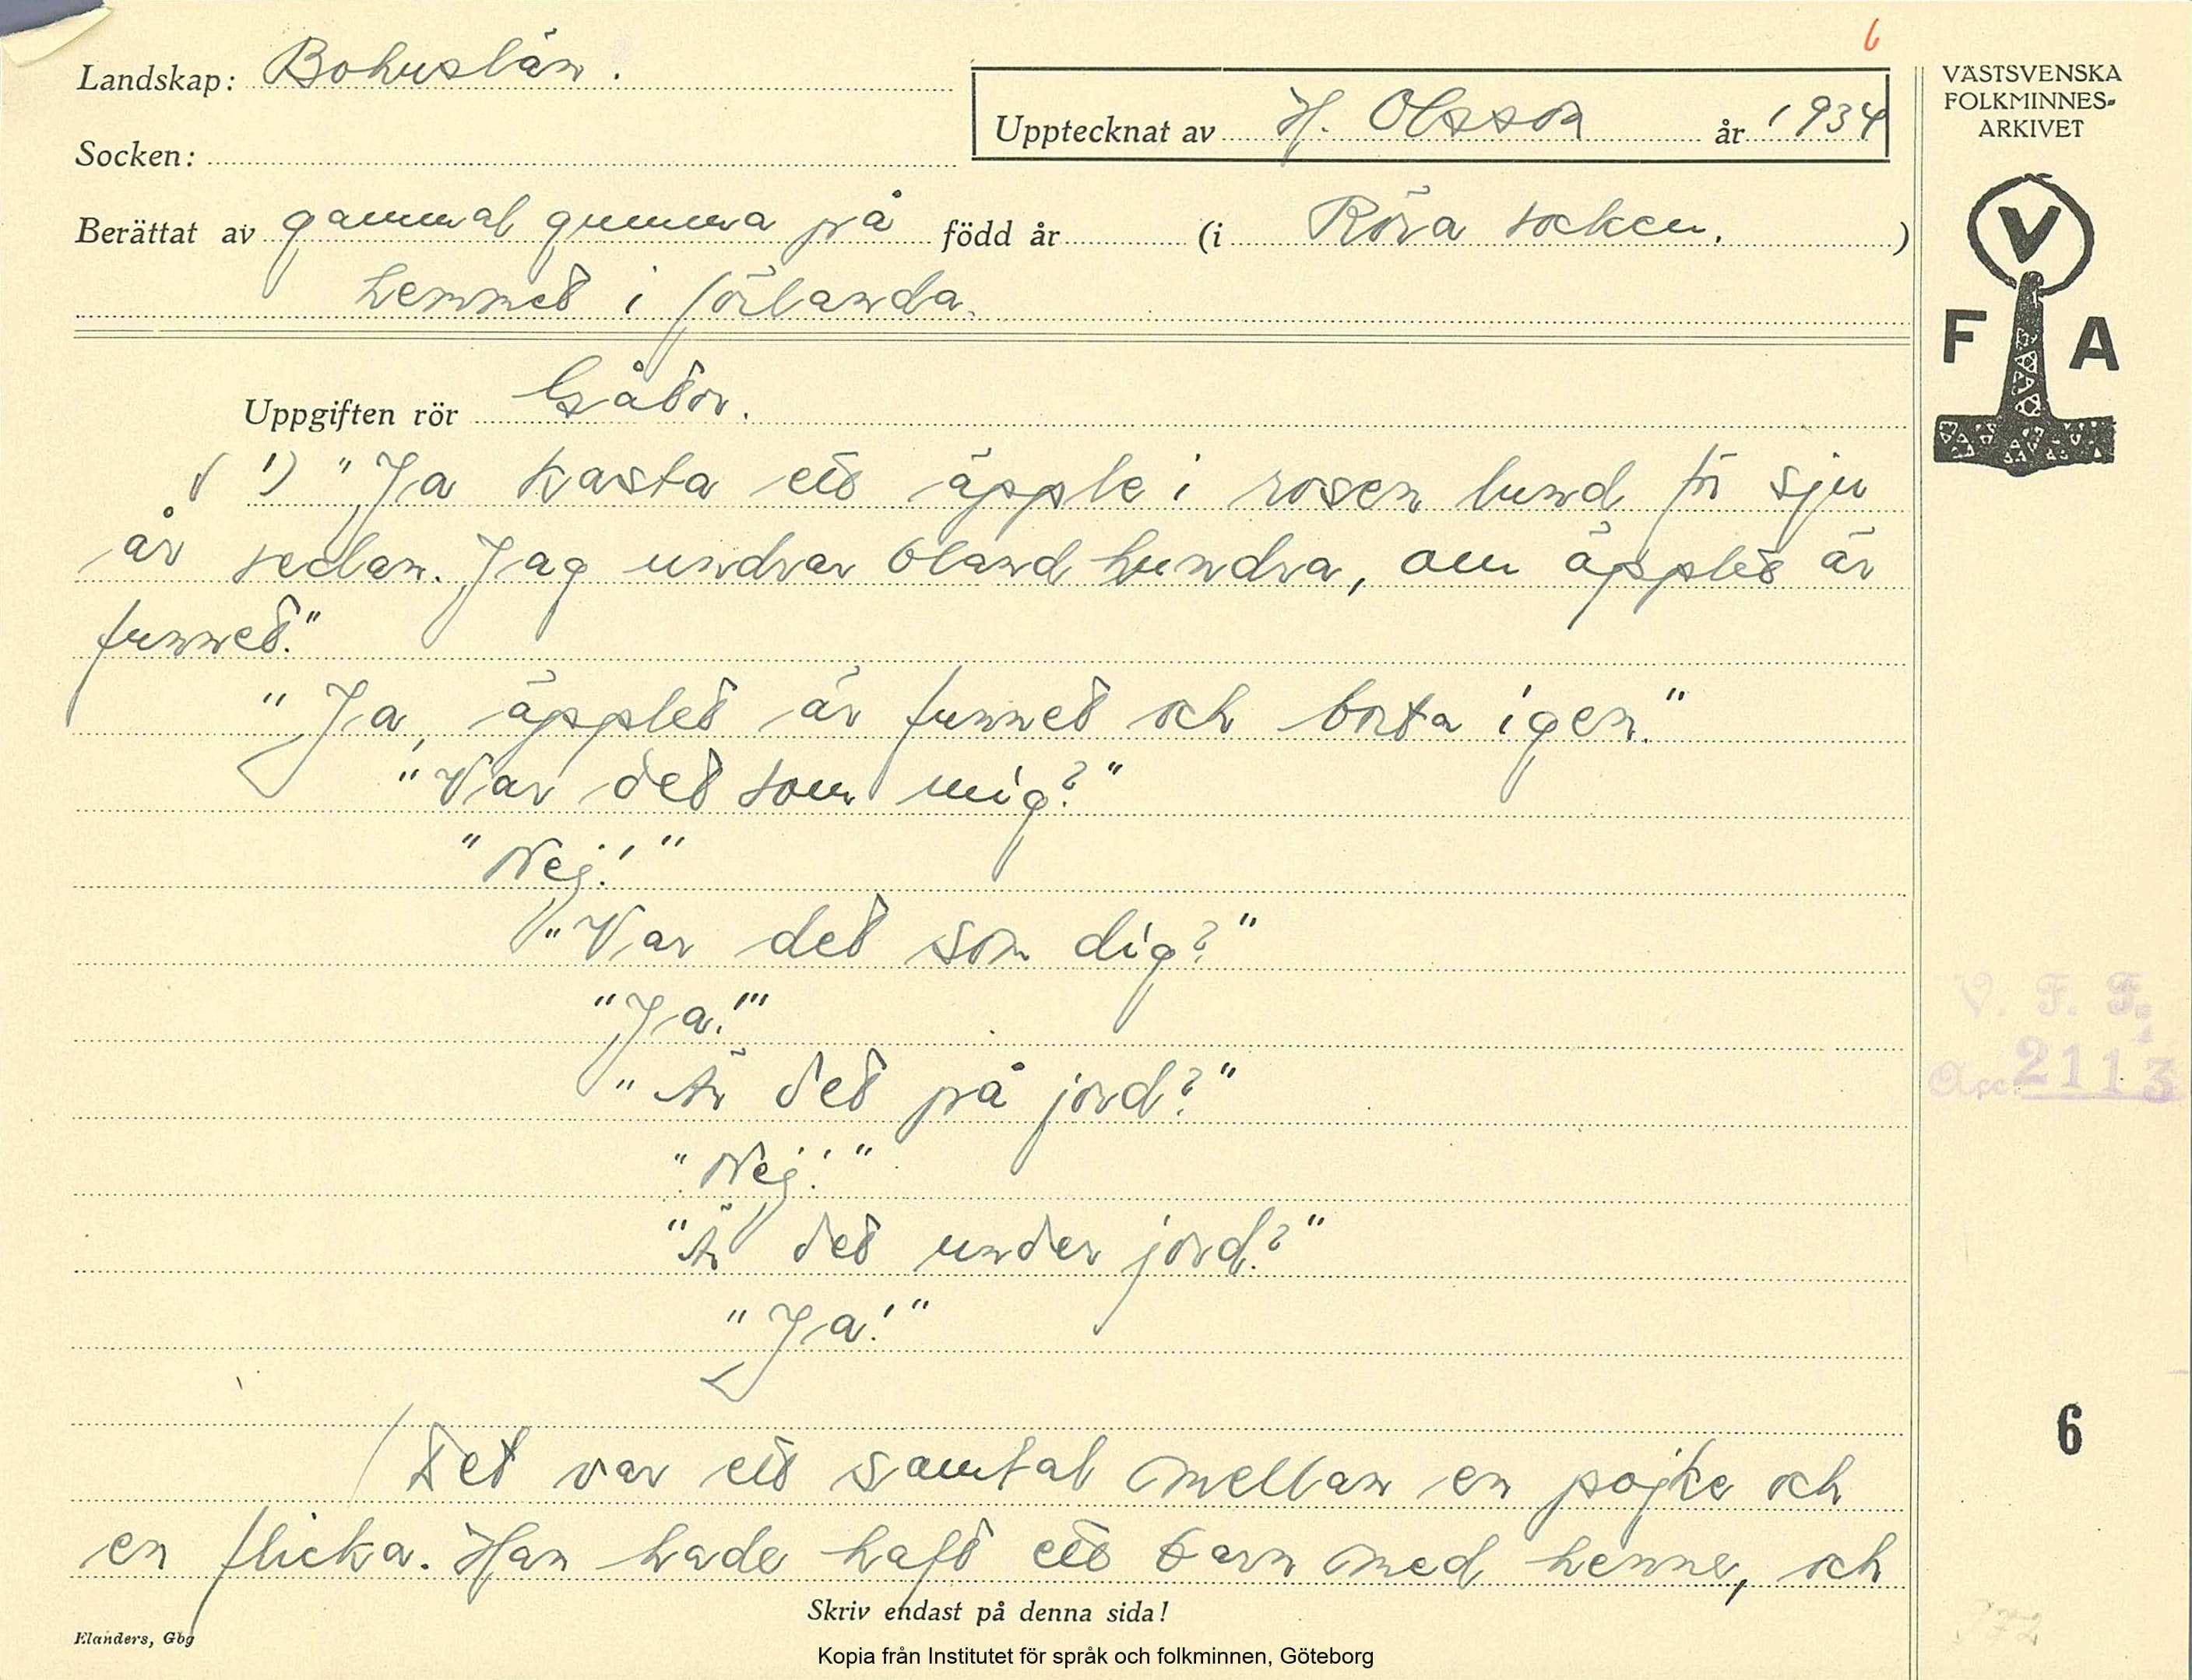 6
Landskap: Bohuslän.
Upptecknat av H. Olsson år 1934
VÄSTSVENSKA
FOLKMINNES-
ARKIVET
Socken:
Berättat av gammal gumma på född år (i Röra socken.)
hemmet i Jörlanda.
V
F A
Uppgiften rör Gåtor.
1) "Ja kasta ett äpple i rosen lund för sju
år sedan. Jag undrar bland hundra, om äpplet är
funnet."
"Ja, äpplet är funnet och borta igen."
"Var det som mig?"
"Nej!"
"Var det som dig?"
"Ja!"
"Är det på jord?"
"Nej!"
"Är det under jord?"
"Ja!"
V. F. F.
Acc. 2113
6
(Det var ett samtal mellan en pojke och
en flicka. Han hade haft ett barn med henne, och
Skriv endast på denna sida!
Elanders, Gbg
Kopia från Institutet för språk och folkminnen, Göteborg